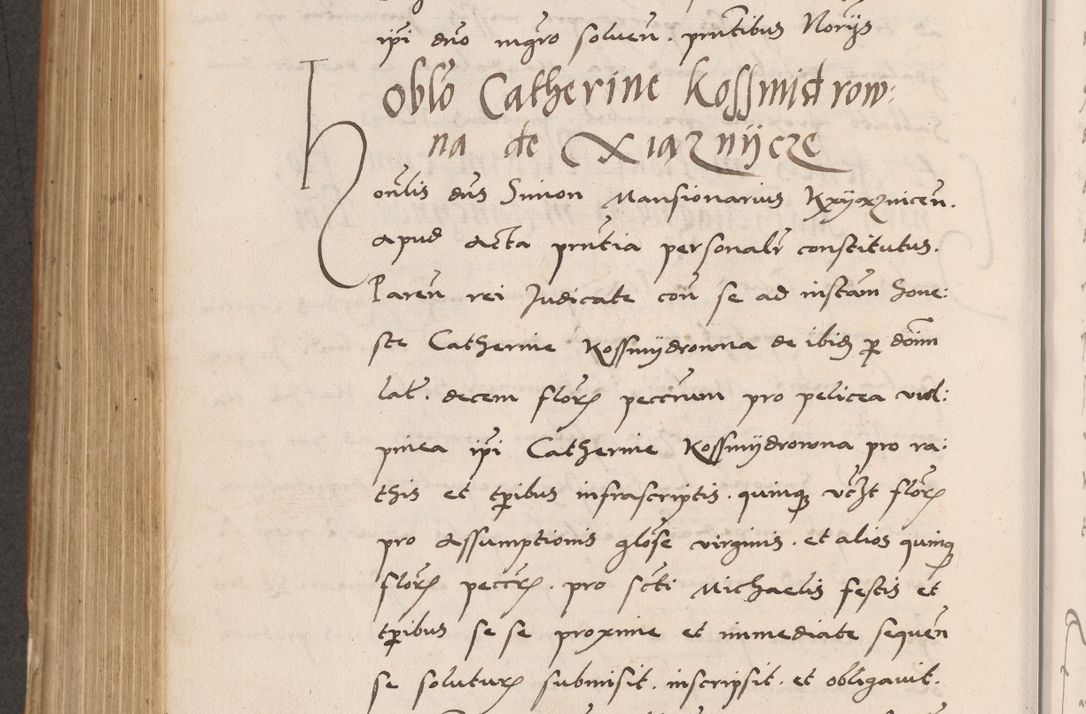 ipi dno mgro solven. prntibus Norijs
Oblo Catherine Kossmidrow:
na de Xiaznijcze
Honlis dns Simon Mansionarius Kxyaznicen.
apud acta prntia personalr constitutus.
Paren rei Judicate con se ad instam hone:
ste Catherine Kossmydrowna de ibid p doim
lat. decem flor peccrum pro pelicea vul:
pinea ipi Catherine Kossmydrowna pro ra:
this et tpibus infrascriptis. quinq vczt flor
pro Assumptionis glose virginis. et alios quinq
flor peccr. pro scti Michaelis festis et
tpibus se se proxime et immediate sequen
se solutur submisit. inscripsit. et obligavit.